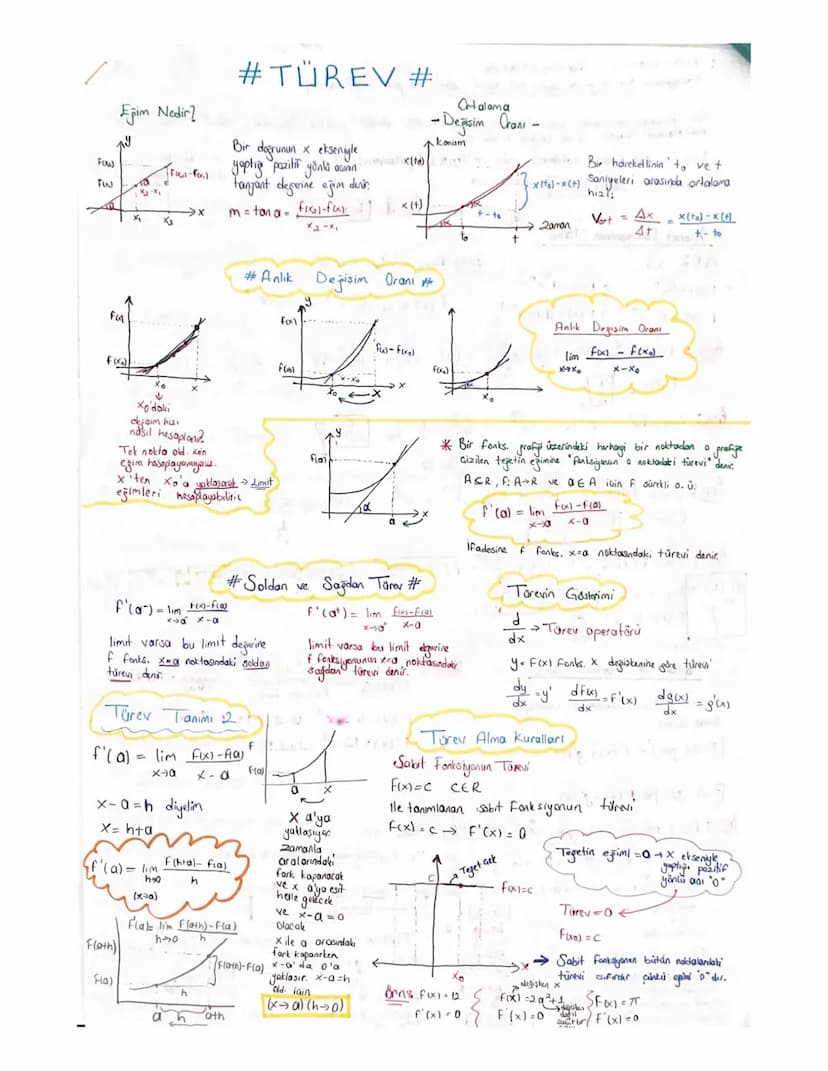 # TÜREV #
Eğim Nedir?
y
F(x₂)
F(x₁)
F(x₂)-F(x₁)
x₂-x₁
x₁
x₂
x
Bir doğrunun x ekseniyle
yaptığı pozitif yönlü açının
tanjant değerine eğim denir.
m = tan α = f(x₂)-f(x₁) / x₂-x₁
Ortalama
- Değişim Oranı -
Konum
x(t₀)
x(t)
x(t₀)-x(t)
t-t₀
t₀
t
Zaman
Bir hareketlinin t₀ ve t
saniyeleri arasında ortalama
hızı;
Vort = Δx / Δt = x(t₀)-x(t) / t-t₀
# Anlık Değişim Oranı #
F(x)
f(x₀)
x₀
x
x₀'daki
değişim hızı
nasıl hesaplanır?
Tek nokta old. için
eğim hesaplayamıyoruz.
x'ten x₀'a yaklaşarak → Limit
eğimleri hesaplayabiliriz
y
f(x)
f(x₀)
f(x)-f(x₀)
x-x₀
x₀
x
x
f(x₀)
x₀
Anlık Değişim Oranı
lim x→x₀ f(x) - f(x₀) / x-x₀
y
f(a)
α
a
x
* Bir fonks. grafiği üzerindeki herhangi bir noktadan o grafiğe
çizilen teğetin eğimine "fonksiyonun o noktadaki türevi" denir
A⊆R, F: A→R ve a∈A için F sürekli o. ü.
f'(a) = lim x→a f(x)-f(a) / x-a
ifadesine f fonks. x=a noktasındaki türevi denir.
# Soldan ve Sağdan Türev #
f'(a⁻) = lim x→a⁻ f(x)-f(a) / x-a
limit varsa bu limit değerine
f fonks. x=a noktasındaki soldan
türevi denir.
f'(a⁺) = lim x→a⁺ f(x)-f(a) / x-a
limit varsa bu limit değerine
f fonksiyonunun x=a noktasındaki
sağdan türevi denir.
Türevin Gösterimi
d/dx → Türev operatörü
y = F(x) Fonks. x değişkenine göre türevi
dy/dx = y' dF(x)/dx = F'(x) dg(x)/dx = g'(x)
Türev Tanımı 2
f'(a) = lim x→a F(x)-F(a) / x-a
x-a=h diyelim
x = h+a
f'(a) = lim h→0 F(h+a)-F(a) / h
(x→a)
F
F(a)
a
x
x a'ya
yaklaşıyor
zamanla
aralarındaki
fark kapanacak
ve x a'ya eşit
hale gelecek
ve x-a=0
olacak
x ile a arasındaki
fark kapanırken
x-a'da 0'a
yaklaşır. x-a=h
old. için
(x→a) (h→0)
F'(a) = lim h→0 F(a+h)-F(a) / h
F(a+h)
F(a)
F(a+h)-F(a)
h
a
h
a+h
Türev Alma Kuralları
Sabit Fonksiyonun Türevi
F(x)=C C∈R
ile tanımlanan sabit fonksiyonun türevi
F(x)=c → F'(x)=0
C
F(x)=c
x₀
x
Teğetin eğimi =0 → x ekseniyle
yaptığı pozitif
yönlü açı "0"
Türev=0
F(x₀)=C
→ Sabit Fonksiyonun bütün noktalardaki
türevi sıfırdır çünkü eğimi "0"dır.
Örn: F(x)=12
F'(x)=0
değişken x
F(x)=2a²+1
F'(x)=0
değişken
değil
sabittir
F(x)=π
F'(x)=0